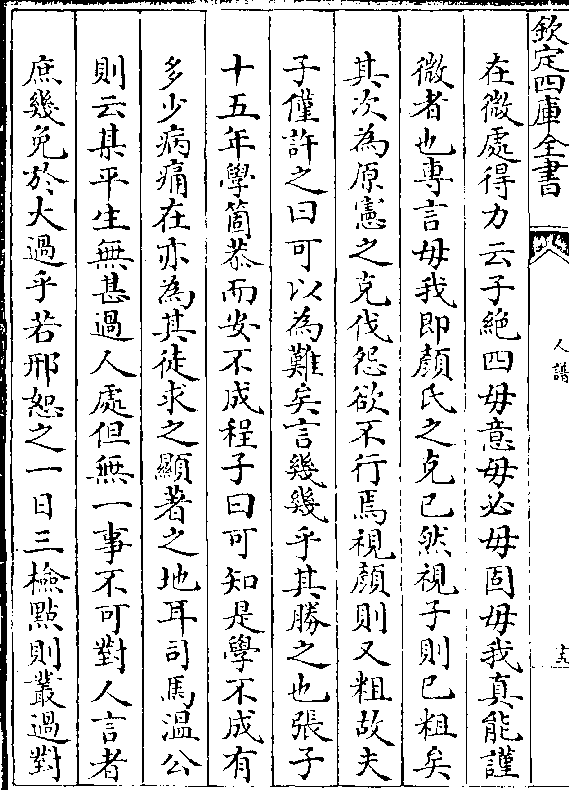 欽定四庫全書
人譜
十五
在微處得力云子絶四毋意毋必毋固毋我真能謹
微者也專言毋我即顔氏之克已然視子則已粗矣
其次為原憲之克伐怨欲不行焉視顔則又粗故夫
子僅許之曰可以為難矣言幾幾乎其勝之也張子
十五年學箇恭而安不成程子曰可知是學不成有
多少病痛在亦為其徒求之顯著之地耳司馬溫公
則云某平生無甚過人處但無一事不可對人言者
庶幾免於大過乎若邢恕之一日三檢點則叢過對